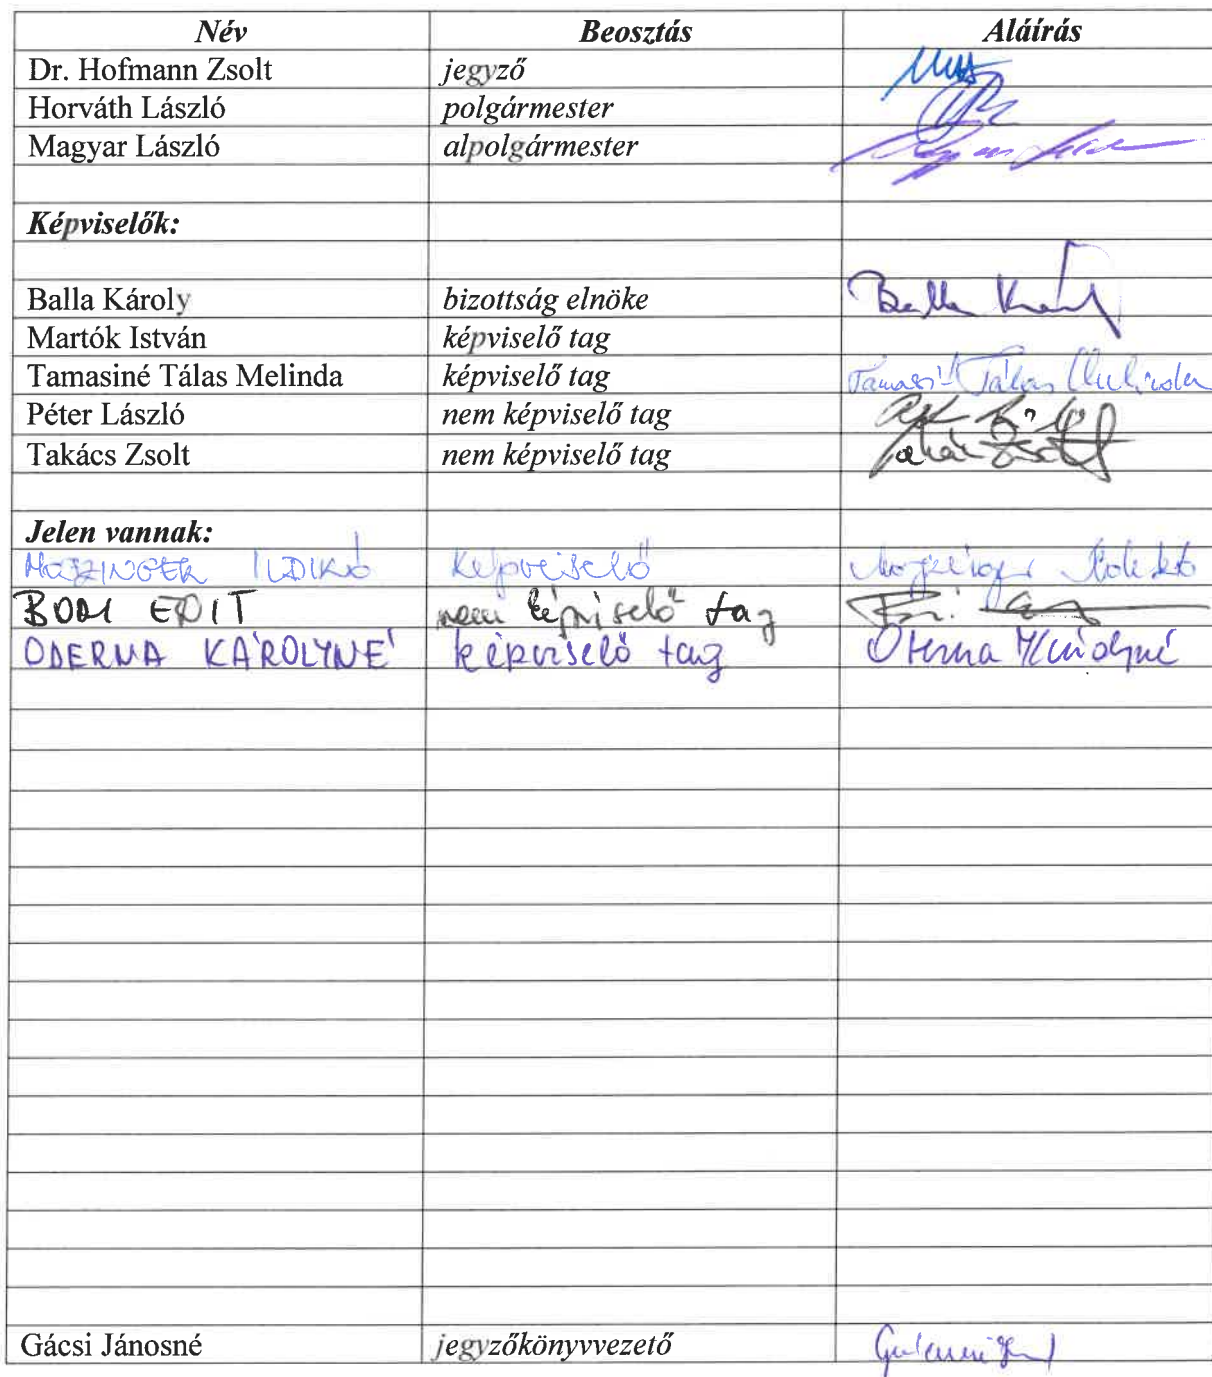 Név Beosztás Aláírás
Dr. Hofmann Zsolt jegyző
Horváth László polgármester
Magyar László alpolgármester
Képviselők:
Balla Károly bizottság elnöke Balla Károly
Martók István képviselő tag
Tamasiné Tálas Melinda képviselő tag Tamasiné Tálas Melinda
Péter László nem képviselő tag
Takács Zsolt nem képviselő tag Takács Zsolt
Jelen vannak:
MOZZINGER ILDIKÓ Képviselő
BODI EDIT nem képviselő tag
ODERNA KÁROLYNÉ képviselő tag Oderna Károlyné
Gácsi Jánosné jegyzőkönyvvezető